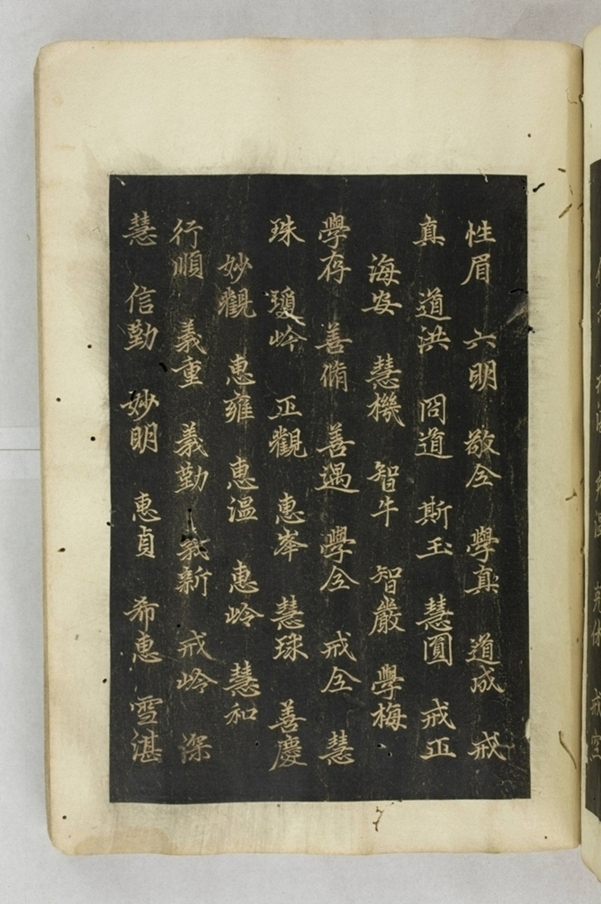 性眉 六明 敬仝 學真 道成 戒
真 道洪 冏道 斯玉 慧圓 戒正
海安 慧機 智牛 智嚴 學梅
學存 善脩 善遇 學仝 戒仝 慧
珠 瓊岭 正觀 惠峯 慧球 善慶
妙觀 惠雍 惠溫 惠岭 慧和
行順 義重 義勤 義新 戒岭 深
慧 信勤 妙明 惠貞 希惠 雪湛